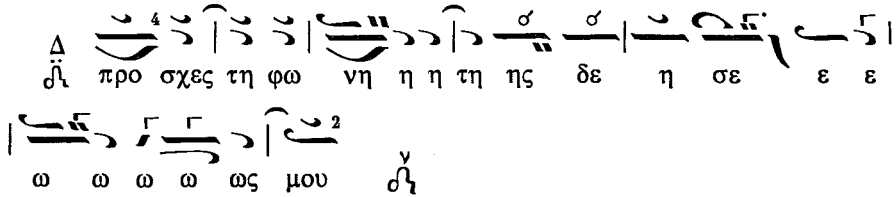 Δ 4 προ σχες τη φω νη η η τη ης δε η σε ε ε
ω ω ω ω ως μου 2 ν